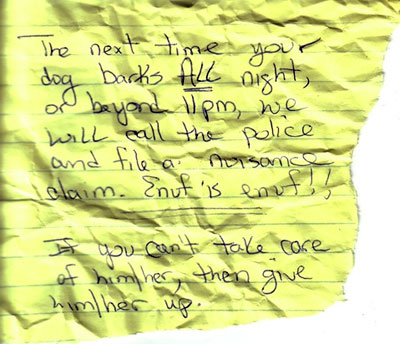 The next time your
dog barks ALL night,
or beyond 11pm, we
will call the police
and file a nuisance
claim. Enuf is enuf!!
If you can't take care
of him/her, then give
him/her up.